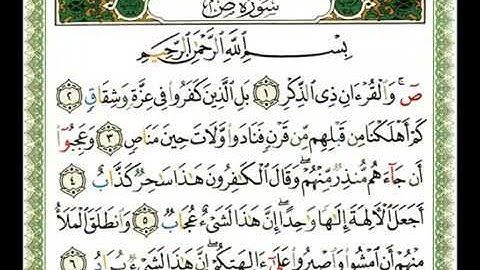 سورة ص
بِسْمِ اللَّهِ الرَّحْمَٰنِ الرَّحِيمِ
صٓ ۚ وَالْقُرْءَانِ ذِي الذِّكْرِ ١ بَلِ الَّذِينَ كَفَرُوا فِي عِزَّةٍ وَشِقَاقٍ ٢
كَمْ أَهْلَكْنَا مِن قَبْلِهِم مِّن قَرْنٍ فَنَادَوا وَّلَاتَ حِينَ مَنَاصٍ ٣ وَعَجِبُوٓا
أَن جَآءَهُم مُّنذِرٌ مِّنْهُمْ ۖ وَقَالَ الْكَٰفِرُونَ هَٰذَا سَٰحِرٌ كَذَّابٌ ٤
أَجَعَلَ الْآلِهَةَ إِلَٰهًا وَٰحِدًا ۖ إِنَّ هَٰذَا لَشَيْءٌ عُجَابٌ ٥ وَانطَلَقَ الْمَلَأُ
مِنْهُمْ أَنِ امْشُوا وَاصْبِرُوا عَلَىٰٓ ءَالِهَتِكُمْ ۖ إِنَّ هَٰذَا لَشَيْءٌ يُرَادُ ٦